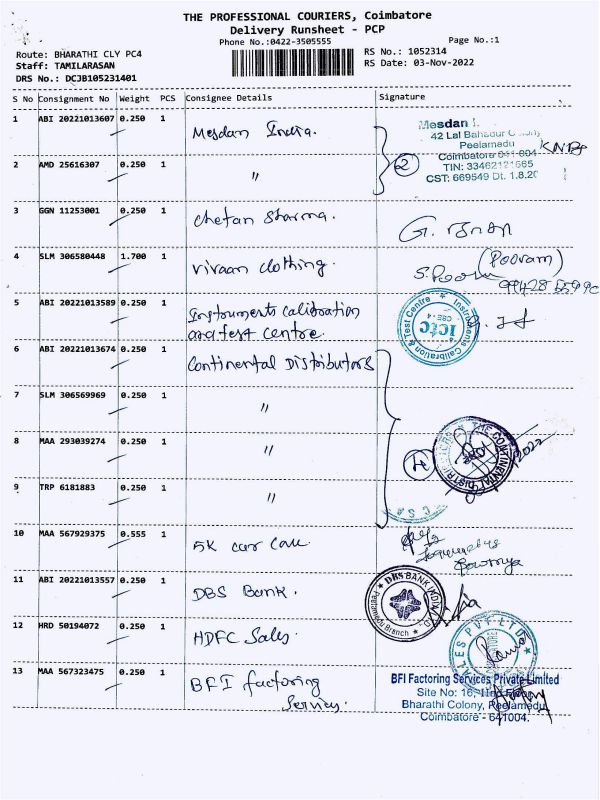 THE PROFESSIONAL COURIERS, Coimbatore
Delivery Runsheet - PCP
Phone No.:0422-3505555
Page No.:1
Route: BHARATHI CLY PC4
RS No.: 1052314
Staff: TAMILARASAN
RS Date: 03-Nov-2022
DRS No.: DCJB105231401
S No Consignment No Weight PCS Consignee Details Signature
1 ABI 20221013607 0.250 1 Mesdan India.
Mesdan I.
42 Lal Bahadur Colony
Peelamedu
Coimbatore 641 604
TIN: 33462121665
CST: 669549 Dt. 1.8.20
2 AMD 25616307 0.250 1 "
2
3 GGN 11253001 0.250 1 Chetan Sharma.
4 SLM 306580448 1.700 1 Vivaan clothing.
(Pooram)
5 ABI 20221013589 0.250 1 Instruments calibration
and test centre.
Instruments Calibration & Test Centre
ictc
CBE-4
6 ABI 20221013674 0.250 1 Continental Distributors
7 SLM 306569969 0.250 1 "
8 MAA 293039274 0.250 1 "
4
THE CONTINENTAL DISTRIBUTORS
9 TRP 6181883 0.250 1 "
10 MAA 567929375 0.555 1 5K car care
Sowmya
11 ABI 20221013557 0.250 1 DBS Bank.
DBS BANK INDIA
Peelamedu Branch
12 HRD 50194072 0.250 1 HDFC Sales.
SALES PVT LTD
13 MAA 567323475 0.250 1 BFI factoring
Services.
BFI Factoring Services Private Limited
Site No: 16, IInd Floor
Bharathi Colony, Peelamedu
Coimbatore - 641004.